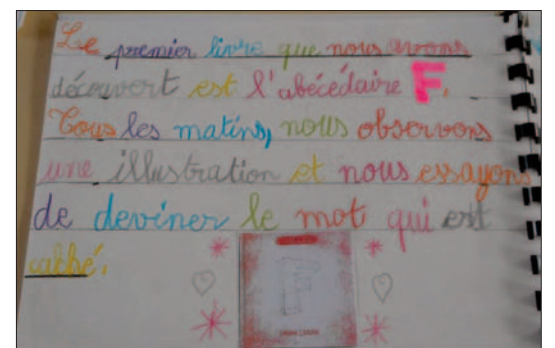 Le premier livre que nous avons
découvert est l'abécédaire F.
Tous les matins, nous observons
une illustration et nous essayons
de deviner le mot qui est
caché.
F